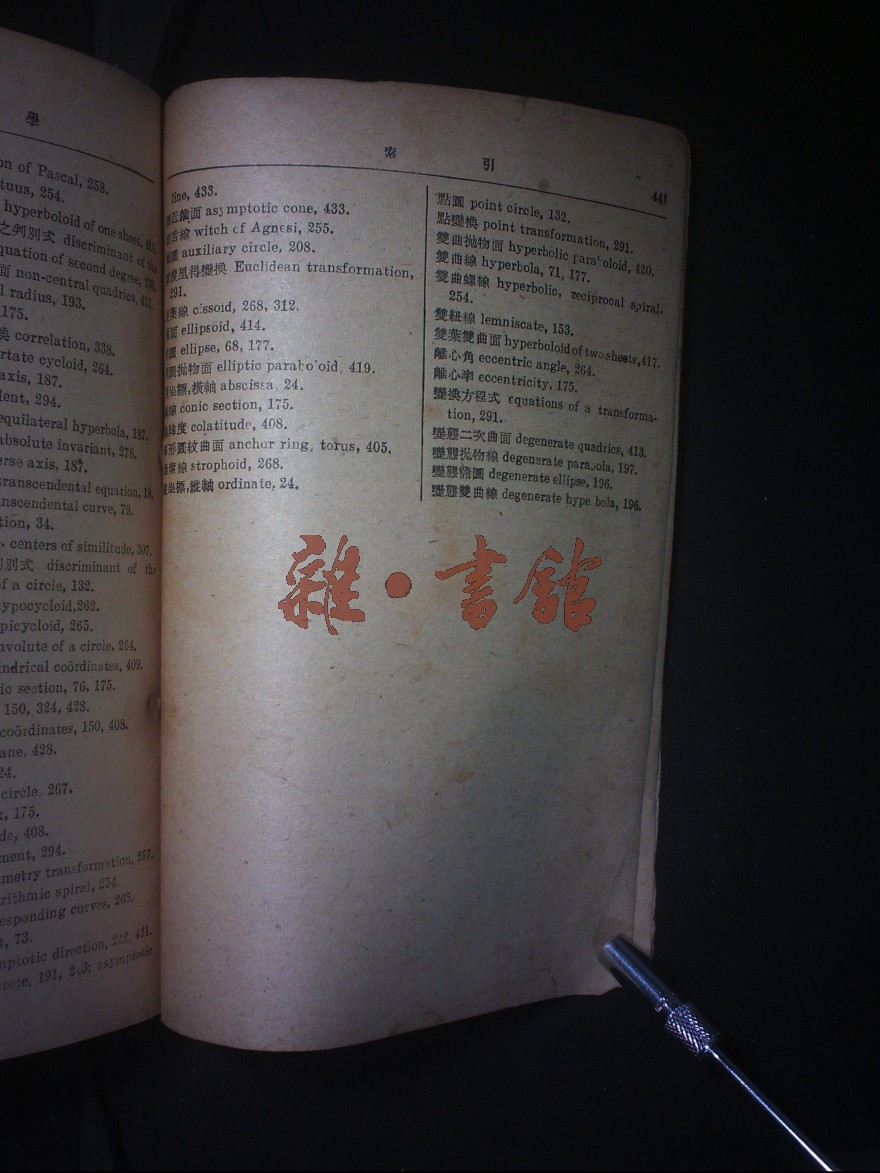 學
on of Pascal, 258.
tuus, 254.
hyperboloid of one sheet,
之判別式 discriminant of the
quation of second degree,
面 non-central quadrics, 413.
l radius, 193.
175.
換 correlation, 338.
rtate cycloid, 264.
axis, 187.
ient, 294.
equilateral hyperbola, 187.
absolute invariant, 278.
erse axis, 187.
transcendental equation,
nscendental curve, 79.
tion, 34.
centers of similitude, 307.
別式 discriminant of the
f a circle, 132.
ypocycloid, 262.
picycloid, 265.
nvolute of a circle, 264.
indrical coördinates, 409.
ic section, 76, 175.
150, 324, 428.
coördinates, 150, 408.
ane, 428.
24.
circle, 267.
x, 175.
de, 408.
ment, 294.
metry transformation, 297.
rithmic spiral, 254.
esponding curves, 265.
t, 73.
mptotic direction, 242, 431.
tote, 191, 243; asymptotic
索 引 441
line, 433.
近錐面 asymptotic cone, 433.
舌線 witch of Agnesi, 255.
圓 auxiliary circle, 208.
里得變換 Euclidean transformation,
291.
葉線 cissoid, 268, 312.
面 ellipsoid, 414.
圓 ellipse, 68, 177.
圓拋物面 elliptic paraboloid, 419.
坐標,橫軸 abscissa, 24.
線 conic section, 175.
緯度 colatitude, 408.
形圓紋曲面 anchor ring, torus, 405.
線 strophoid, 268.
坐標,縱軸 ordinate, 24.
點圓 point circle, 132.
點變換 point transformation, 291.
雙曲拋物面 hyperbolic paraboloid, 420.
雙曲線 hyperbola, 71, 177.
雙曲螺線 hyperbolic, reciprocal spiral,
254.
雙紐線 lemniscate, 153.
雙葉雙曲面 hyperboloid of two sheets, 417.
離心角 eccentric angle, 264.
離心率 eccentricity, 175.
變換方程式 equations of a transforma-
tion, 291.
變態二次曲面 degenerate quadrics, 413.
變態拋物線 degenerate parabola, 197.
變態橢圓 degenerate ellipse, 196.
變態雙曲線 degenerate hyperbola, 196.
雜·書館